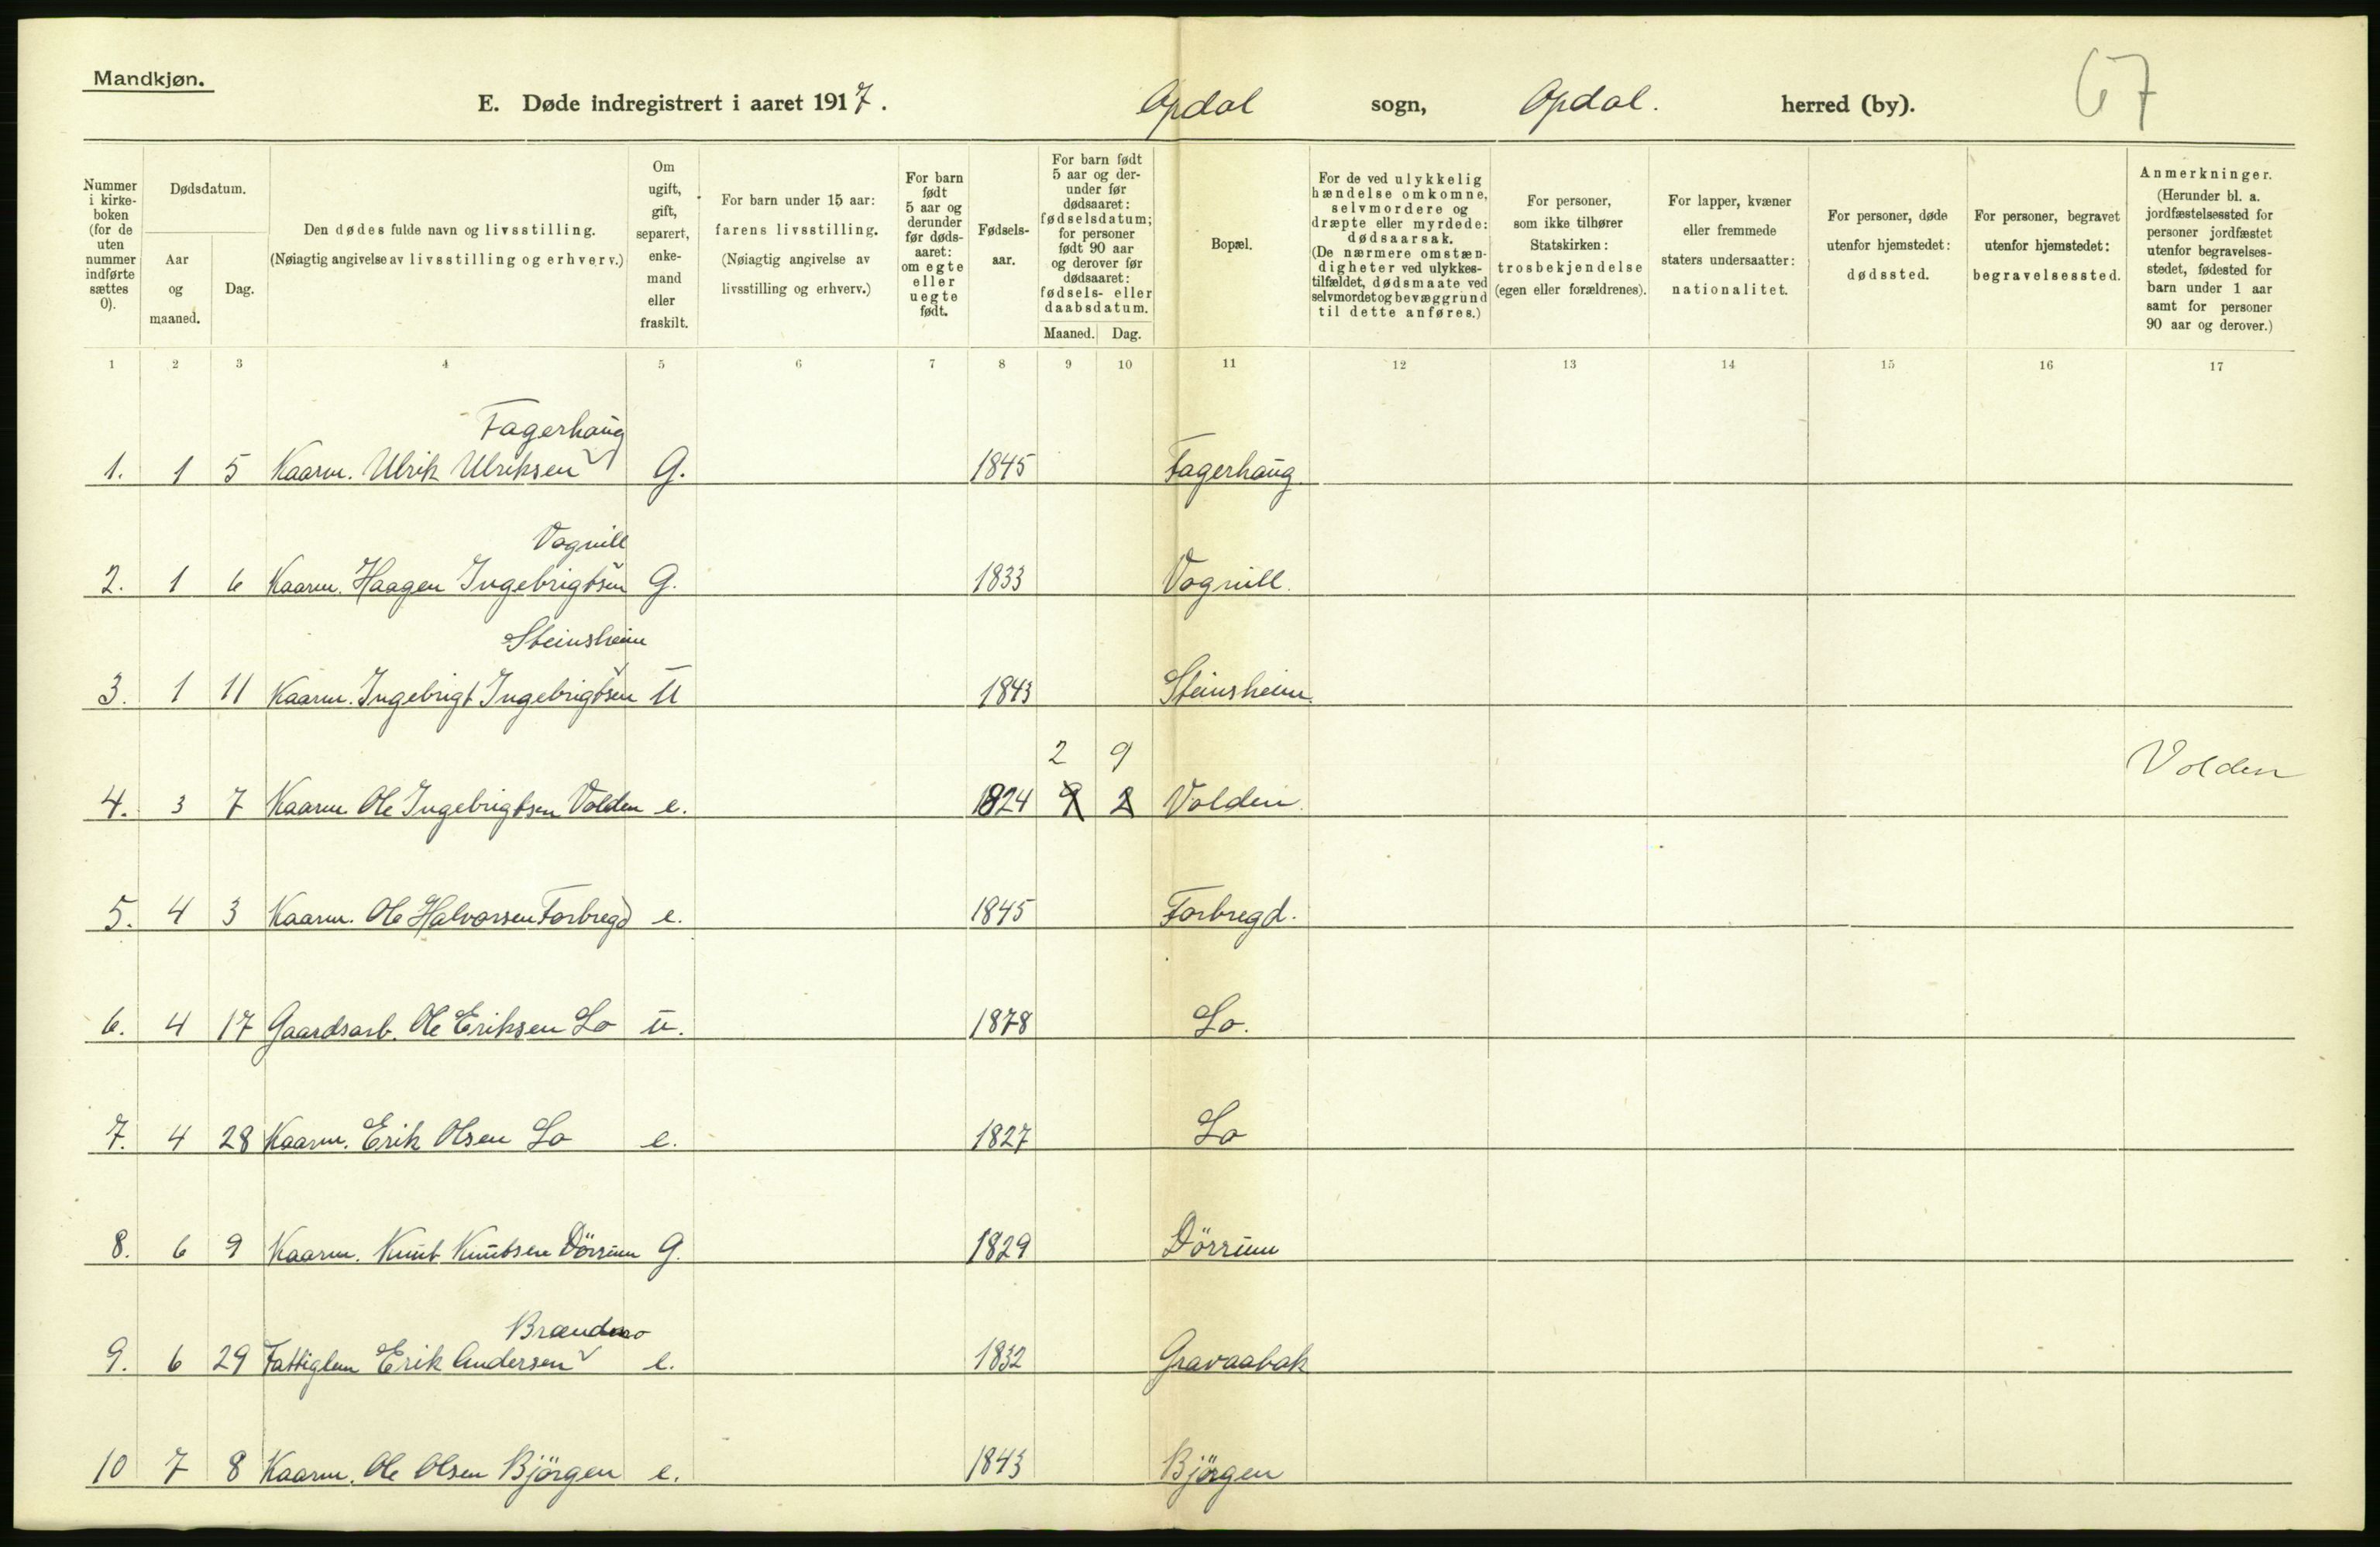 Mandkjøn.
E. Døde indregistrert i aaret 1917. Opdal sogn, Opdal. herred (by). 67
Nummer i kirke- boken (for de uten nummer indførte sættes 0).
Dødsdatum.
Aar og maaned.
Dag.
Den dødes fulde navn og livsstilling.
(Nøiagtig angivelse av livsstilling og erhverv.)
Om ugift, gift, separert, enke- mand eller fraskilt.
For barn under 15 aar:
farens livsstilling.
(Nøiagtig angivelse av livsstilling og erhverv.)
For barn født 5 aar og derunder før døds- aaret: om egte eller uegte født.
Fødsels- aar.
For barn født 5 aar og der- under før dødsaaret: fødselsdatum; for personer født 90 aar og derover før dødsaaret: fødsels- eller daabsdatum.
Maaned. Dag.
Bopæl.
For de ved ulykkelig hændelse omkomne, selvmordere og dræpte eller myrdede: dødsaarsak.
(De nærmere omstæn- digheter ved ulykkes- tilfældet, dødsmaate ved selvmordet og bevæggrund til dette anføres.)
For personer, som ikke tilhører Statskirken: trosbekjendelse (egen eller forældrenes).
For lapper, kvæner eller fremmede staters undersaatter: nationalitet.
For personer, døde utenfor hjemstedet: dødssted.
For personer, begravet utenfor hjemstedet: begravelsessted.
Anmerkninger.
(Herunder bl. a. jordfæstelsessted for personer jordfæstet utenfor begravelses- stedet, fødested for barn under 1 aar samt for personer 90 aar og derover.)
1 2 3 4 5 6 7 8 9 10 11 12 13 14 15 16 17
Fagerhaug
1. 1 5 Kaarm. Ulrik Ulriksen G. 1845 Fagerhaug
Vognill
2. 1 6 Kaarm. Haagen Ingebrigtsen G. 1833 Vognill.
Steinsheim
3. 1 11 Kaarm. Ingebrigt Ingebrigtsen U 1843 Steinsheim.
2 9 Volden
4. 3 7 Kaarm. Ole Ingebrigtsen Volden e. 1824 9 2 Volden.
5. 4 3 Kaarm. Ole Halvorsen Forbregd e. 1845 Forbregd.
6. 4 17 Gaardsarb. Ole Eriksen Lo u. 1878 Lo.
7. 4 28 Kaarm. Erik Olsen Lo e. 1827 Lo
8. 6 9 Kaarm. Knut Knutsen Dörrum G. 1829 Dörrum
Brændmo
9. 6 29 Fattiglem Erik Andersen e. 1832 Gravaabak
10 7 8 Kaarm. Ole Olsen Björgen e. 1843 Björgen